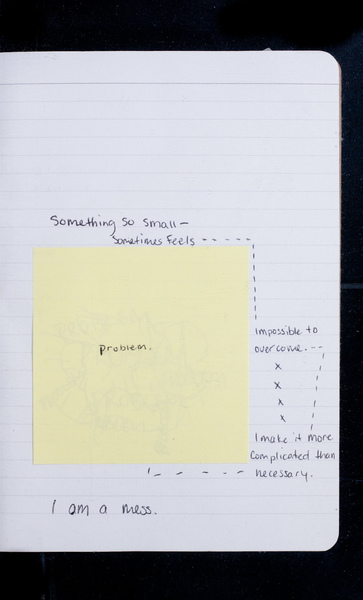 Something so small —
Sometimes Feels
problem.
Impossible to
overcome.
x
x
x
x
I make it more
complicated than
necessary.
I am a mess.